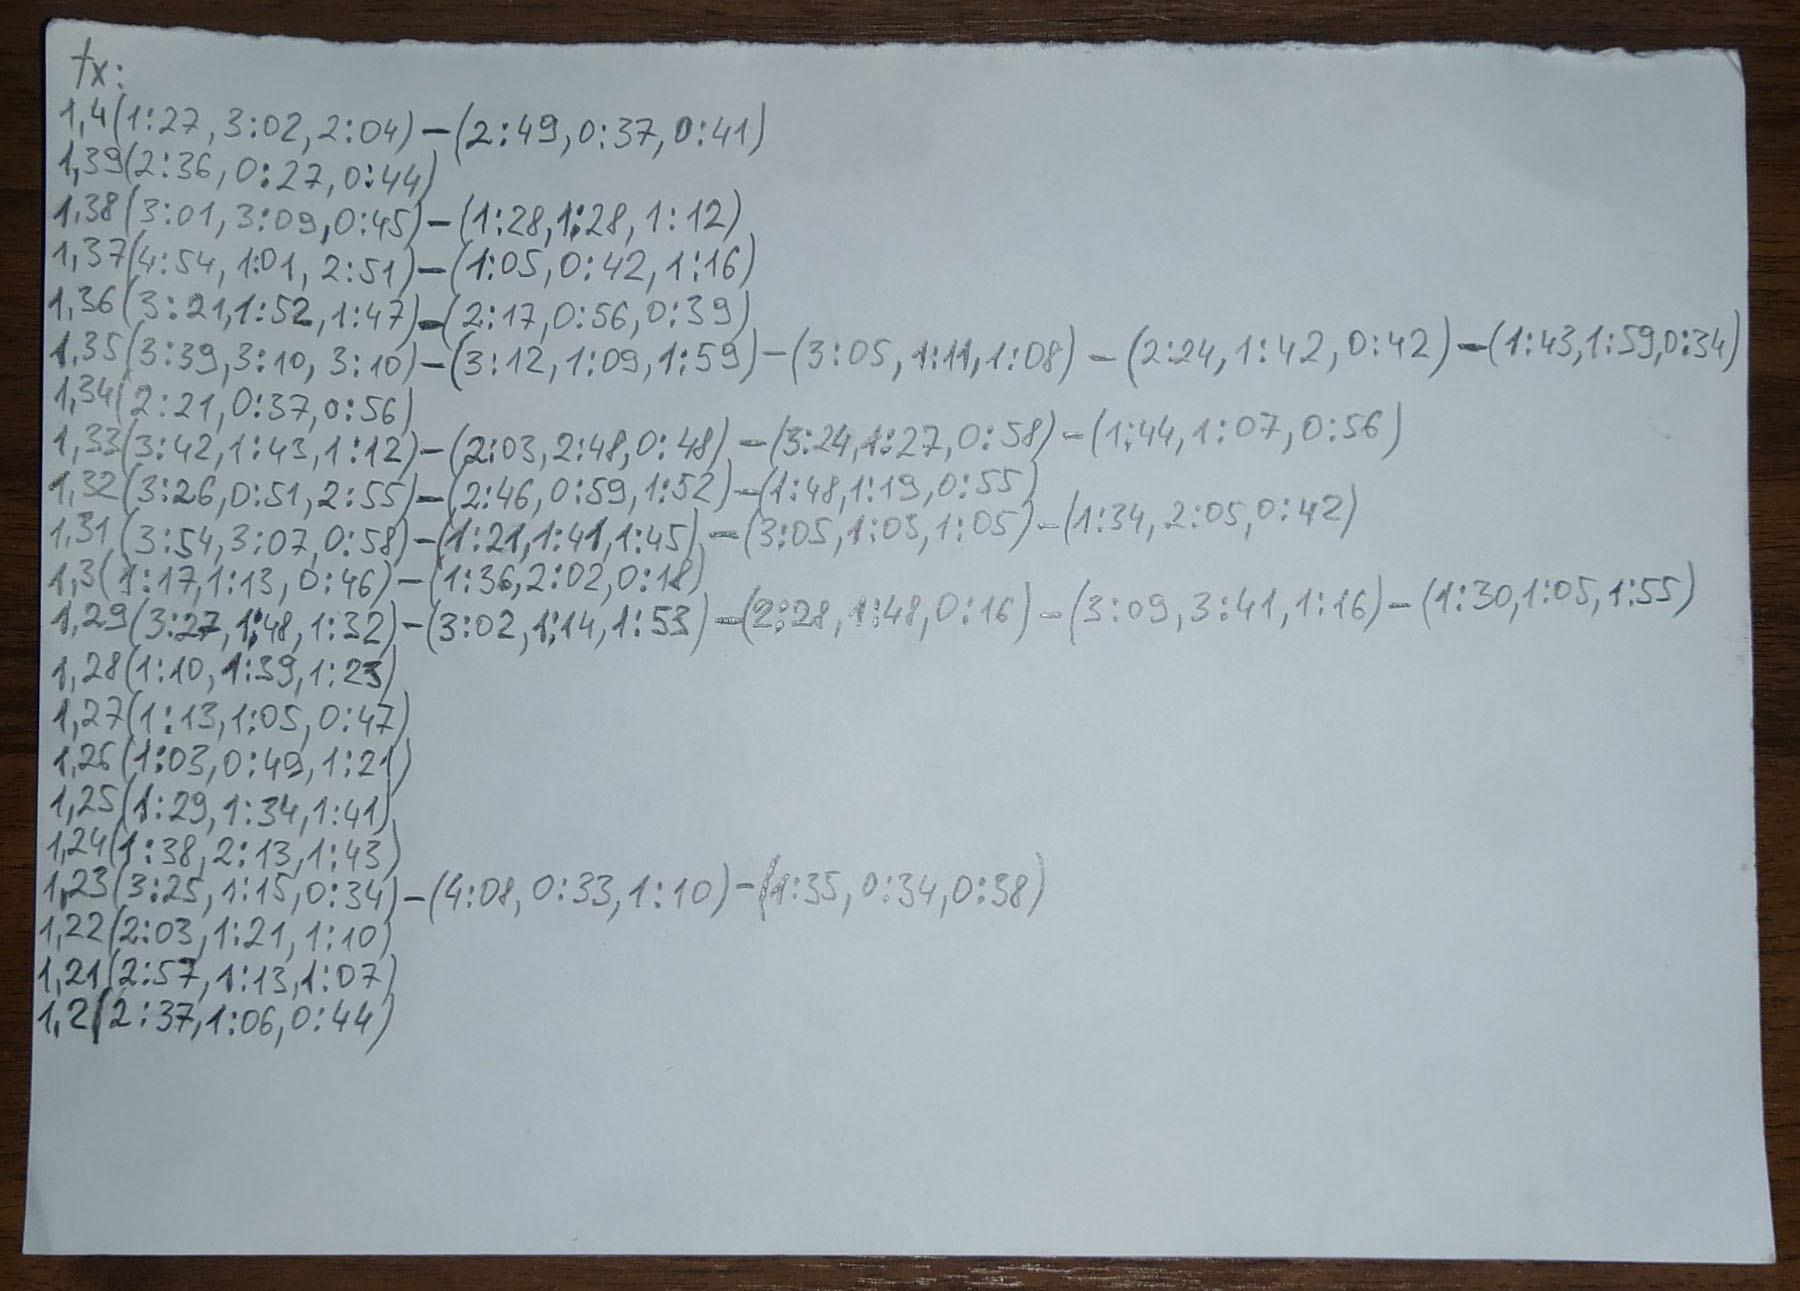 tx:
1,4(1:27,3:02,2:04)-(2:49,0:37,0:41)
1,39(2:36,0:27,0:44)
1,38(3:01,3:09,0:45)-(1:28,1:28,1:12)
1,37(4:54,1:01,2:51)-(1:05,0:42,1:16)
1,36(3:21,1:52,1:47)-(2:17,0:56,0:39)
1,35(3:39,3:10,3:10)-(3:12,1:09,1:59)-(3:05,1:11,1:08)-(2:24,1:42,0:42)-(1:43,1:59,0:34)
1,34(2:21,0:37,0:56)
1,33(3:42,1:43,1:12)-(2:03,2:48,0:48)-(3:24,1:27,0:58)-(1:44,1:07,0:56)
1,32(3:26,0:51,2:55)-(2:46,0:59,1:52)-(1:48,1:19,0:55)
1,31(3:54,3:07,0:58)-(1:21,1:41,1:45)-(3:05,1:03,1:05)-(1:34,2:05,0:42)
1,3(1:17,1:13,0:46)-(1:36,2:02,0:18)
1,29(3:27,1:48,1:32)-(3:02,1:14,1:53)-(2:28,1:48,0:16)-(3:09,3:41,1:16)-(1:30,1:05,1:55)
1,28(1:10,1:39,1:23)
1,27(1:13,1:05,0:47)
1,26(1:03,0:49,1:21)
1,25(1:29,1:34,1:41)
1,24(1:38,2:13,1:43)
1,23(3:25,1:15,0:34)-(4:08,0:33,1:10)-(1:35,0:34,0:38)
1,22(2:03,1:21,1:10)
1,21(2:57,1:13,1:07)
1,2(2:37,1:06,0:44)